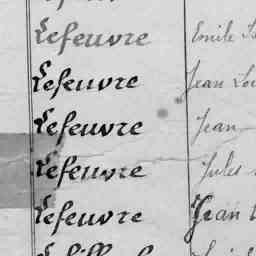 Lefeuvre Emile
Lefeuvre Jean Lou
Lefeuvre Jean
Lefeuvre Jules
Lefeuvre Jean